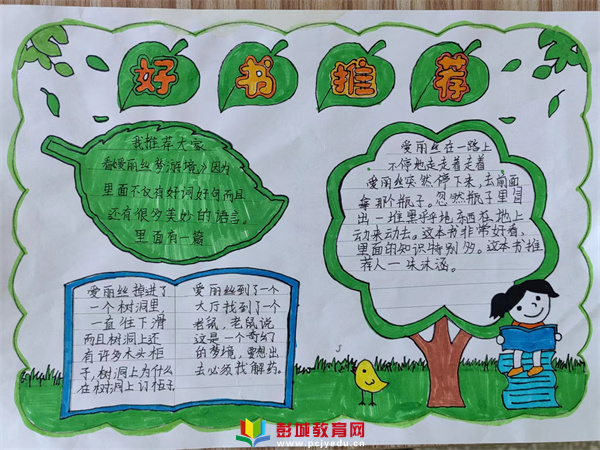 好书推荐
我推荐大家
看《爱丽丝梦游境》因为
里面不仅有好词好句而且
还有很多美妙的语言。
里面有一篇
爱丽丝在一路上
不停地走走着走着
爱丽丝突然停下来,去前面
拿那个瓶子。忽然瓶子里冒
出一推黑乎乎地东西在地上
动来动去。这本书非常好看,
里面的知识特别多。这本书推
荐人一朱沫涵。
爱丽丝掉进了
一个树洞里
一直往下滑
而且树洞上还
有许多木头柜
子,树洞上为什么
在树洞上订柜子
爱丽丝到了一个
大厅找到了一个
老鼠,老鼠说
这是一个奇幻
的梦境,要想出
去必须找解药。
彭城教育网
www.pcjyedu.cn